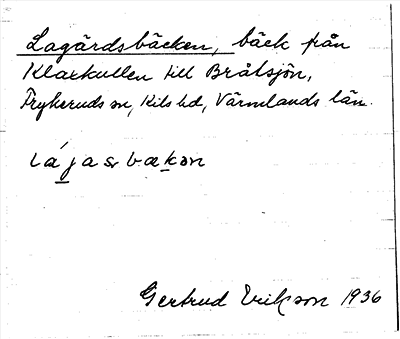 Lagårdsbäcken, bäck från
Klarkullen till Bråtsjön,
Frykeruds sn, Kils hd, Värmlands län.
lájasbækən
Gertrud Erikson 1936